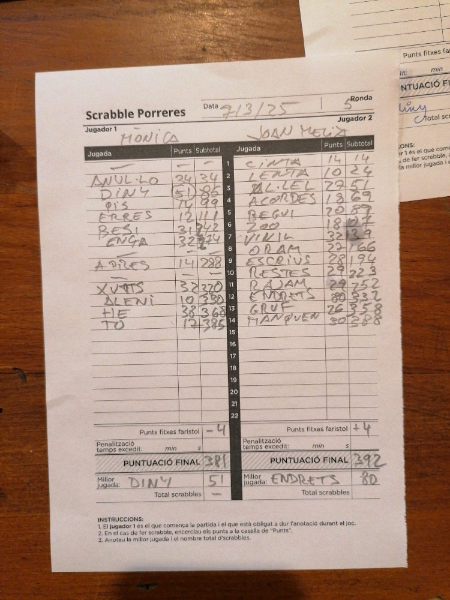 Punts fitxes
min
NTUACIÓ FINAL
Scrabble Porreres
Data 2/3/25 Ronda 5
Jugador 1 MÒNICA Jugador 2 JOAN
Jugada Punts Subtotal Jugada Punts Subtotal
— — — 1 CINTA 14 14
ANUL·LO 34 34 2 LENTA 10 24
DINY 51 85 3 AL·LEL 27 51
PIS 14 99 4 ACORDES 18 69
ERRES 12 111 5 BEGUI 20 89
BESI 31 142 6 ZOO 18 107
ENGA 32 7 VINIL 32 139
— — — 8 ORAM 27 166
APILES 14 288 9 ESCRIUS 28 194
— — — 10 RESTES 29 223
XUTS 32 320 11 RAJAM 29 252
ALENI 10 330 12 ENDRETS 80 332
HE 38 368 13 GRUF 26 358
TO 17 385 14 MANQUEN 30 388
15
16
17
18
19
20
21
22
Punts fitxes faristol -4 Punts fitxes faristol +4
Penalització temps excedit: min s Penalització temps excedit: min s
PUNTUACIÓ FINAL 381 PUNTUACIÓ FINAL 392
Millor jugada: DINY 51 Millor jugada: ENDRETS 80
Total scrabbles — Total scrabbles
INSTRUCCIONS:
1. El jugador 1 és el que comença la partida i el que està obligat a dur l'anotació durant el joc.
2. En el cas de fer scrabble, encercleu els punts a la casella de "Punts".
3. Anotau la millor jugada i el nombre total d'scrabbles.